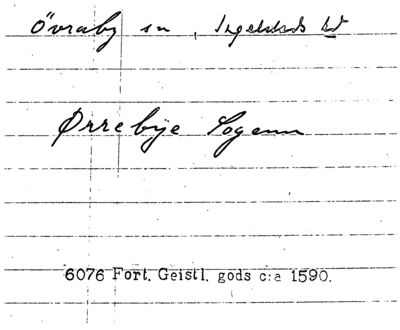 Övraby sn, Ingelstads hd
Ørrebÿe Sogenn
6076 Fort. Geistl. gods c:a 1590.